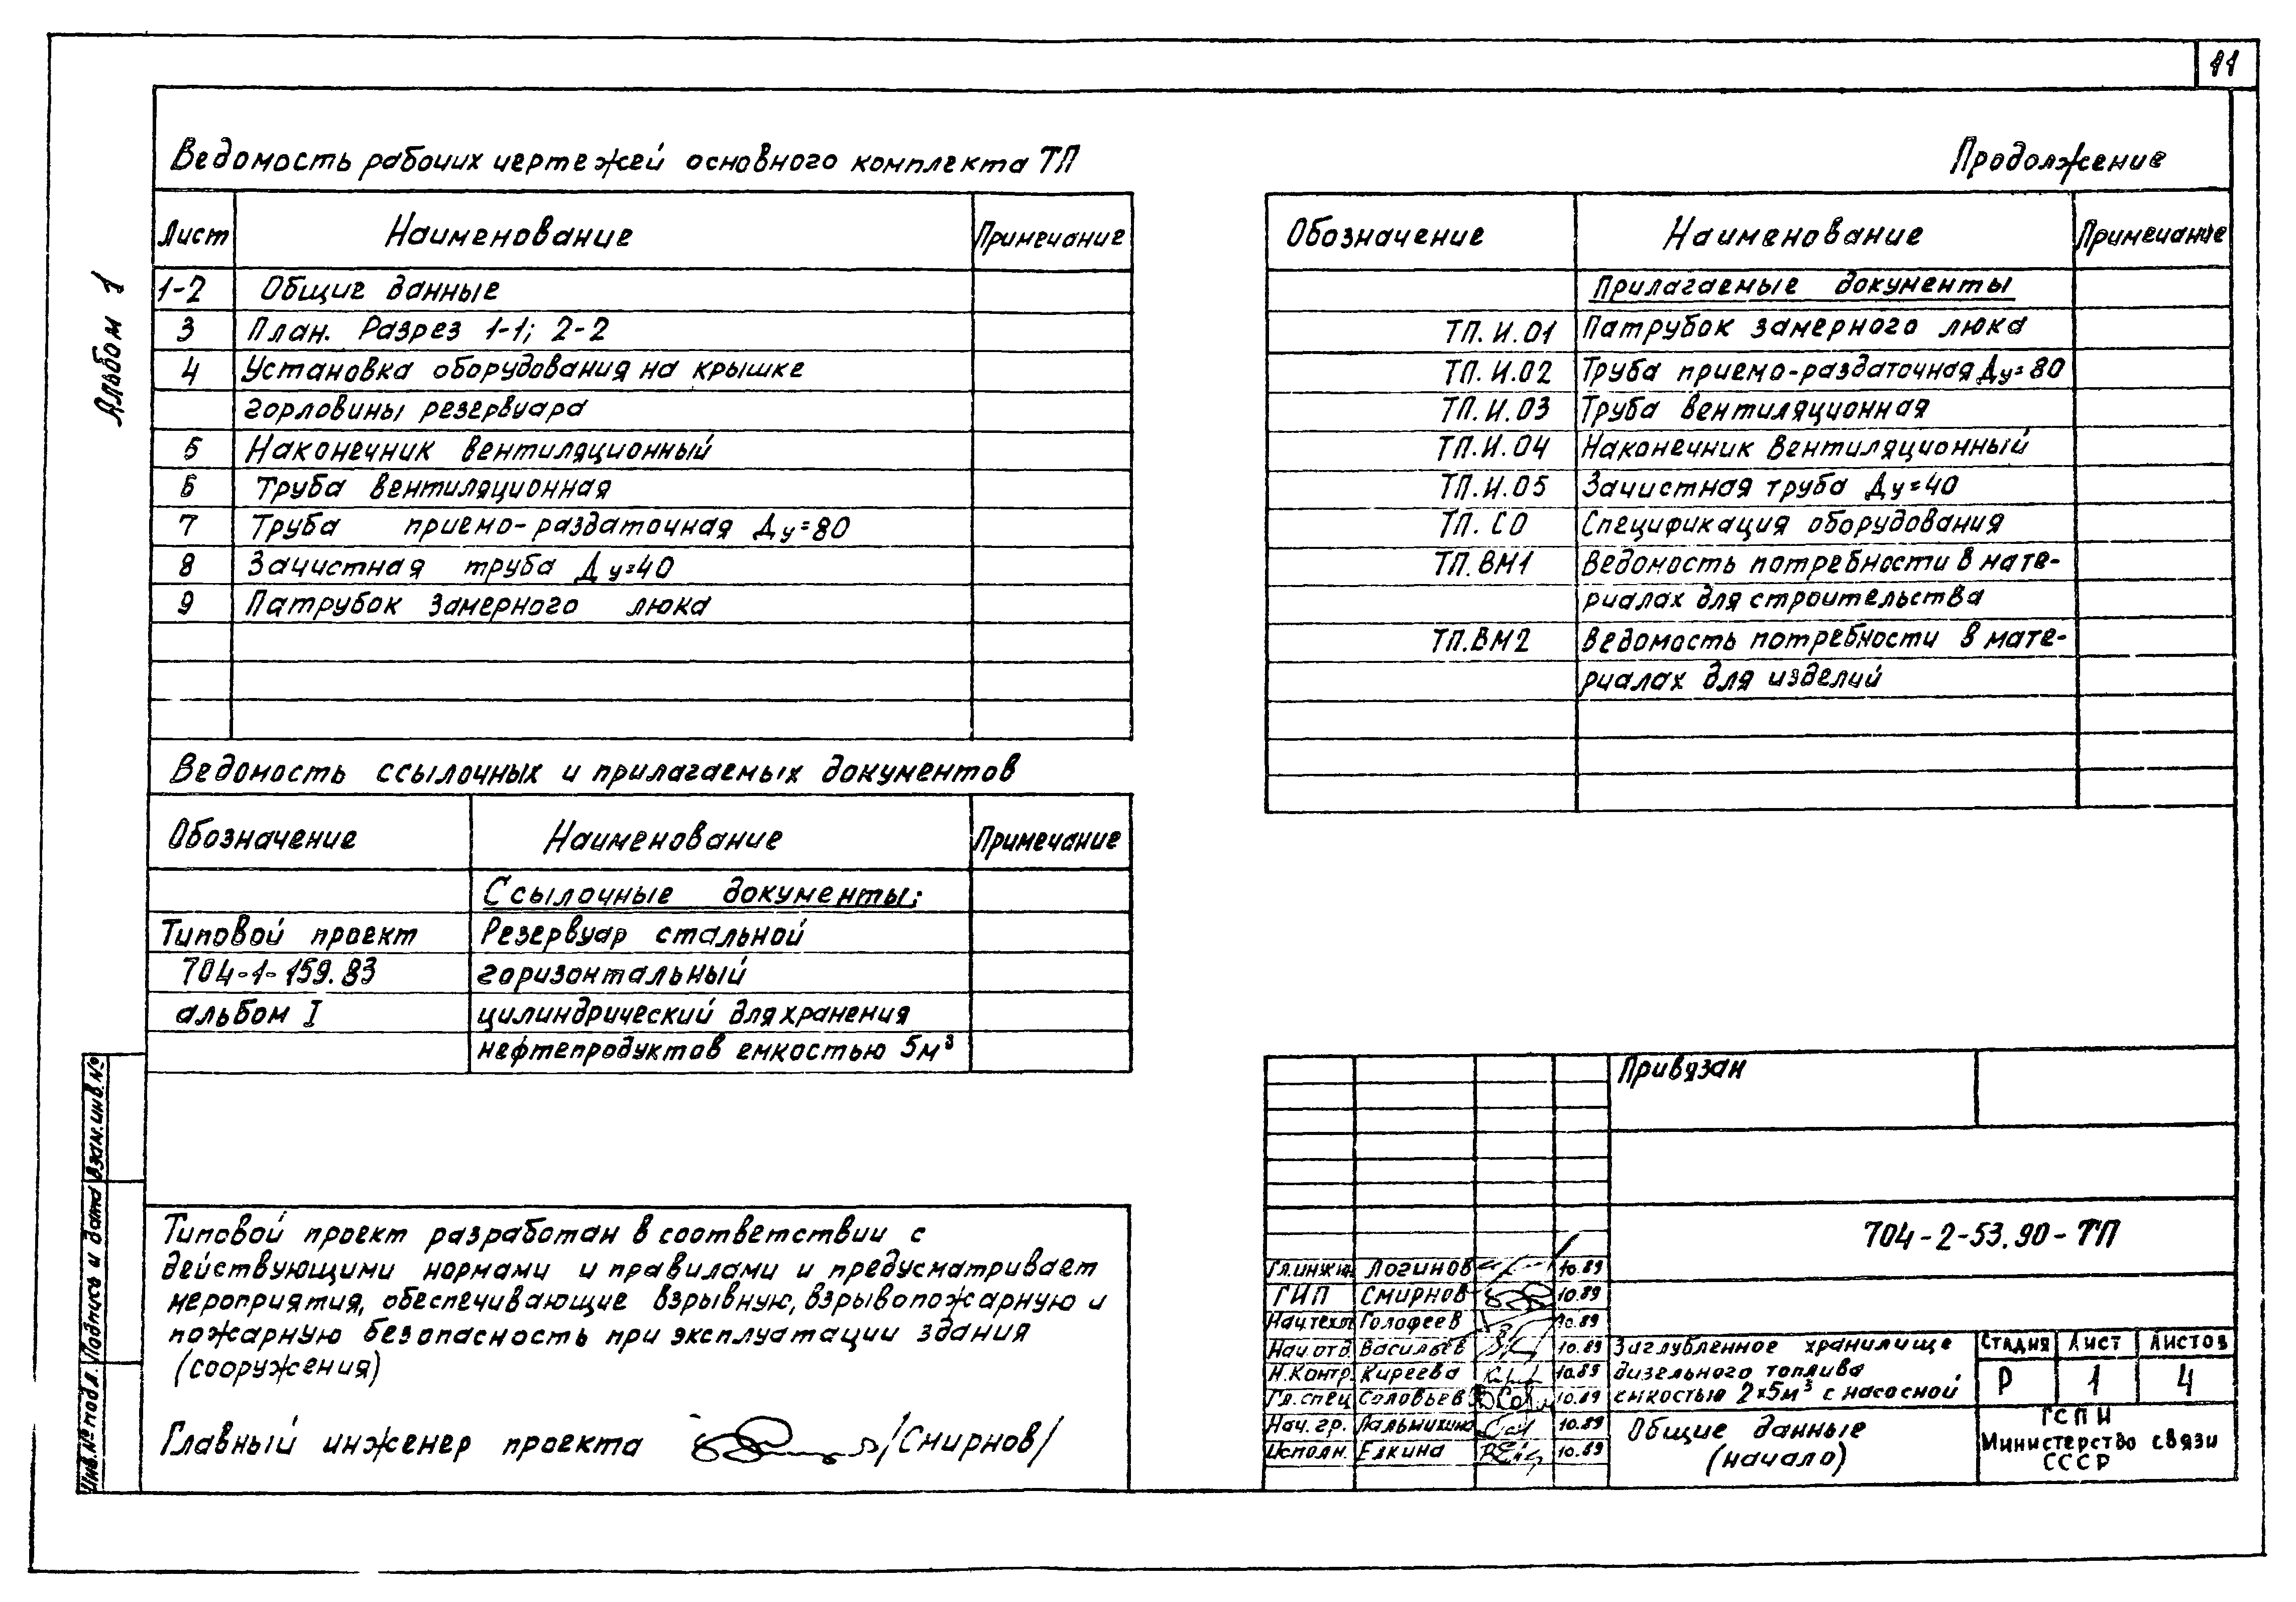 11
Альбом 1
Ведомость рабочих чертежей основного комплекта ТП
Лист Наименование Примечание
1-2 Общие данные
3 План. Разрез 1-1; 2-2
4 Установка оборудования на крышке
горловины резервуара
5 Наконечник вентиляционный
6 Труба вентиляционная
7 Труба приемо-раздаточная Ду=80
8 Зачистная труба Ду=40
9 Патрубок замерного люка
Ведомость ссылочных и прилагаемых документов
Обозначение Наименование Примечание
Ссылочные документы:
Типовой проект Резервуар стальной
704-1-159.83 горизонтальный
альбом I цилиндрический для хранения
нефтепродуктов емкостью 5м³
Типовой проект разработан в соответствии с
действующими нормами и правилами и предусматривает
мероприятия, обеспечивающие взрывную, взрывопожарную и
пожарную безопасность при эксплуатации здания
(сооружения)
Главный инженер проекта /Смирнов/
Продолжение
Обозначение Наименование Примечание
Прилагаемые документы
ТП.И.01 Патрубок замерного люка
ТП.И.02 Труба приемо-раздаточная Ду=80
ТП.И.03 Труба вентиляционная
ТП.И.04 Наконечник вентиляционный
ТП.И.05 Зачистная труба Ду=40
ТП.СО Спецификация оборудования
ТП.ВМ1 Ведомость потребности в мате-
риалах для строительства
ТП.ВМ2 Ведомость потребности в мате-
риалах для изделий
Привязан
704-2-53.90-ТП
Гл.инж.ин. Логинов 10.89
ГИП Смирнов 10.89
Нач.техн Голофеев 10.89
Нач.отд. Васильев 10.89
Н.Контр. Киреева 10.89
Гл.спец Соловьев 10.89
Нач.гр. 10.89
Исполн. Елкина 10.89
Заглубленное хранилище
дизельного топлива
емкостью 2×5м³ с насосной
Стадия Лист Листов
Р 1 4
Общие данные
(начало)
ГСПИ
Министерство связи
СССР
Взам.инв.№
Подпись и дата
Инв.№ подл.